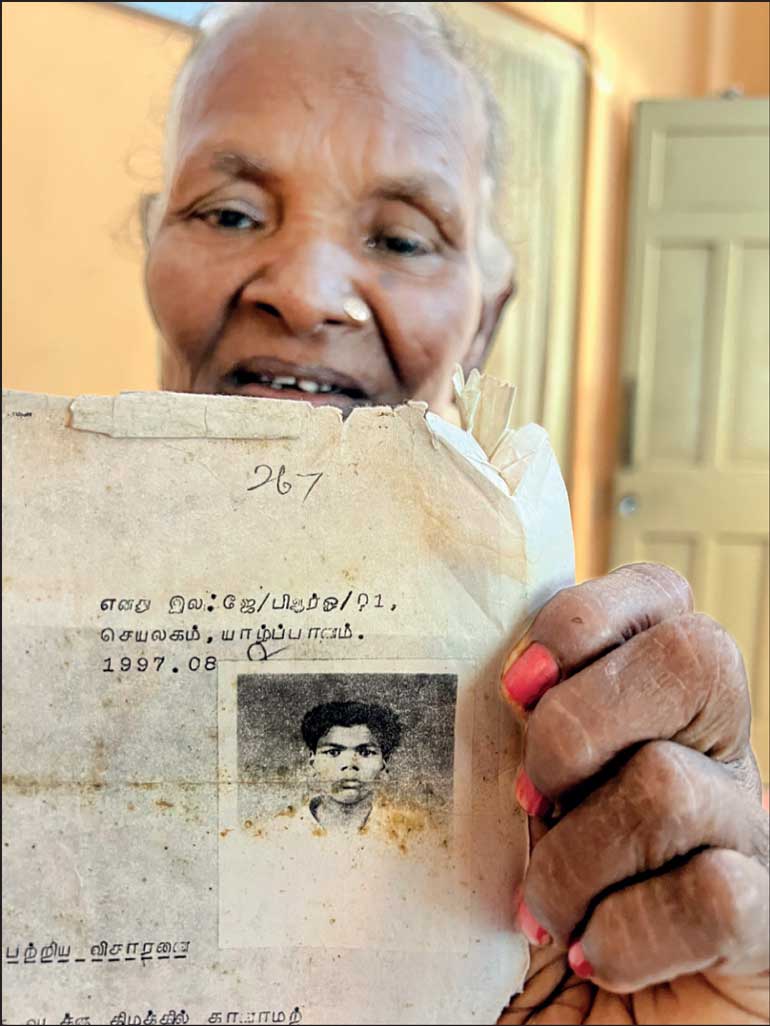 267
எனது இல: ஜே/பிஆர்ஓ/01,
செயலகம், யாழ்ப்பாணம்.
1997.08
பற்றிய விசாரணை
கிழக்கில் காணாமற்